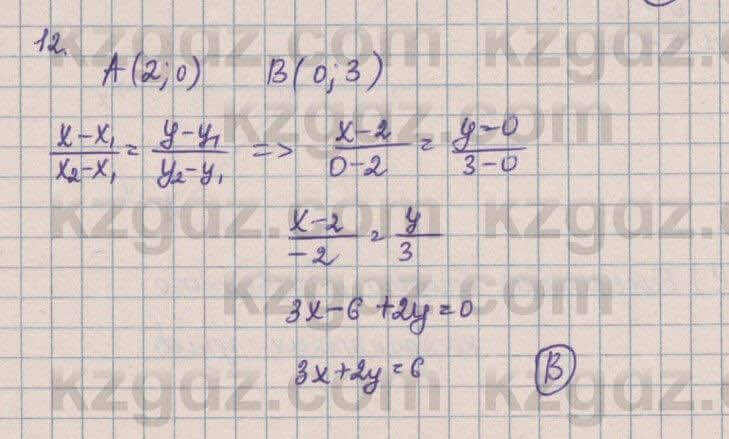 12.
A(2;0) B(0;3)
x-x₁/x₂-x₁ = y-y₁/y₂-y₁ => x-2/0-2 = y-0/3-0
x-2/-2 = y/3
3x-6+2y=0
3x+2y=6 B
kzgdz.com
kzgdz.com
kzgdz.com
kzgdz.com
kzgdz.com